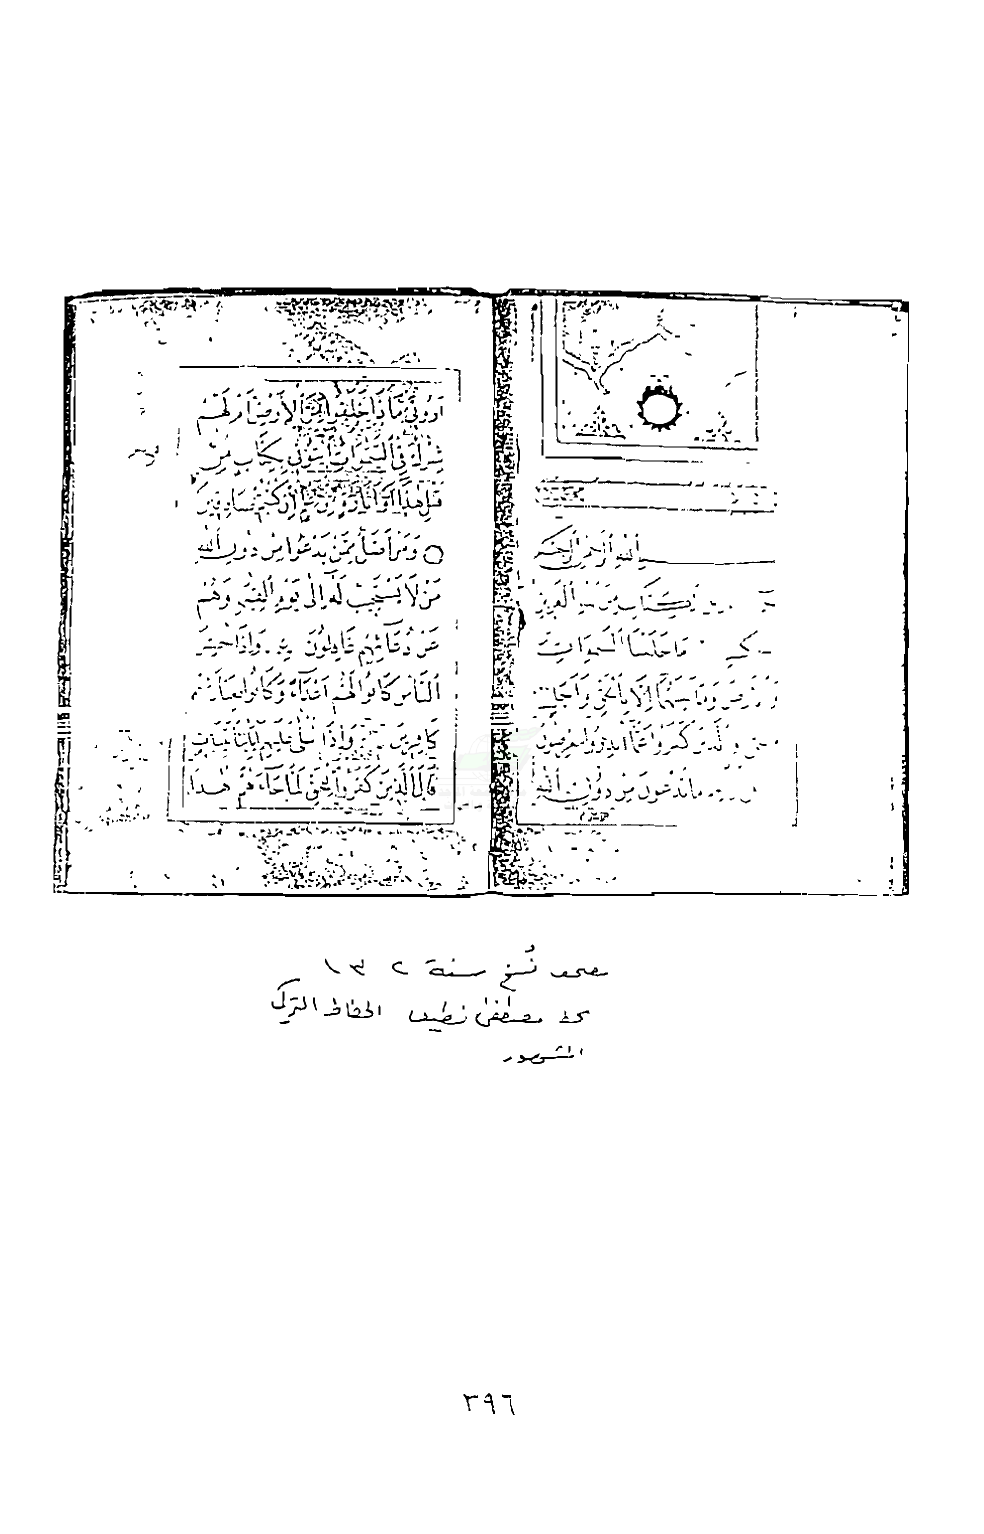 الله الرحمن الرحيم
الكتاب من الله العزيز
ما خلقنا السموات
وما بينهما إلا بالحق وأجل
والذين كفروا عما أنذروا معرضون
ما تدعون من دون الله
أروني ماذا خلقوا من الأرض أم لهم
شرك في السموات ائتوني بكتاب من
قبل هذا أو أثارة من علم إن كنتم صادقين
ومن أضل ممن يدعوا من دون الله
من لا يستجيب له إلى يوم القيمة وهم
عن دعائهم غافلون وإذا حشر
الناس كانوا لهم أعداء وكانوا بعبادتهم
كافرين وإذا تتلى عليهم آياتنا بينات
قال الذين كفروا للحق لما جاءهم هذا
مصحف نسخ سنة ١٣٠٢
بخط مصطفى نظيف الحفاظ التركي
المشهور
٣٩٦